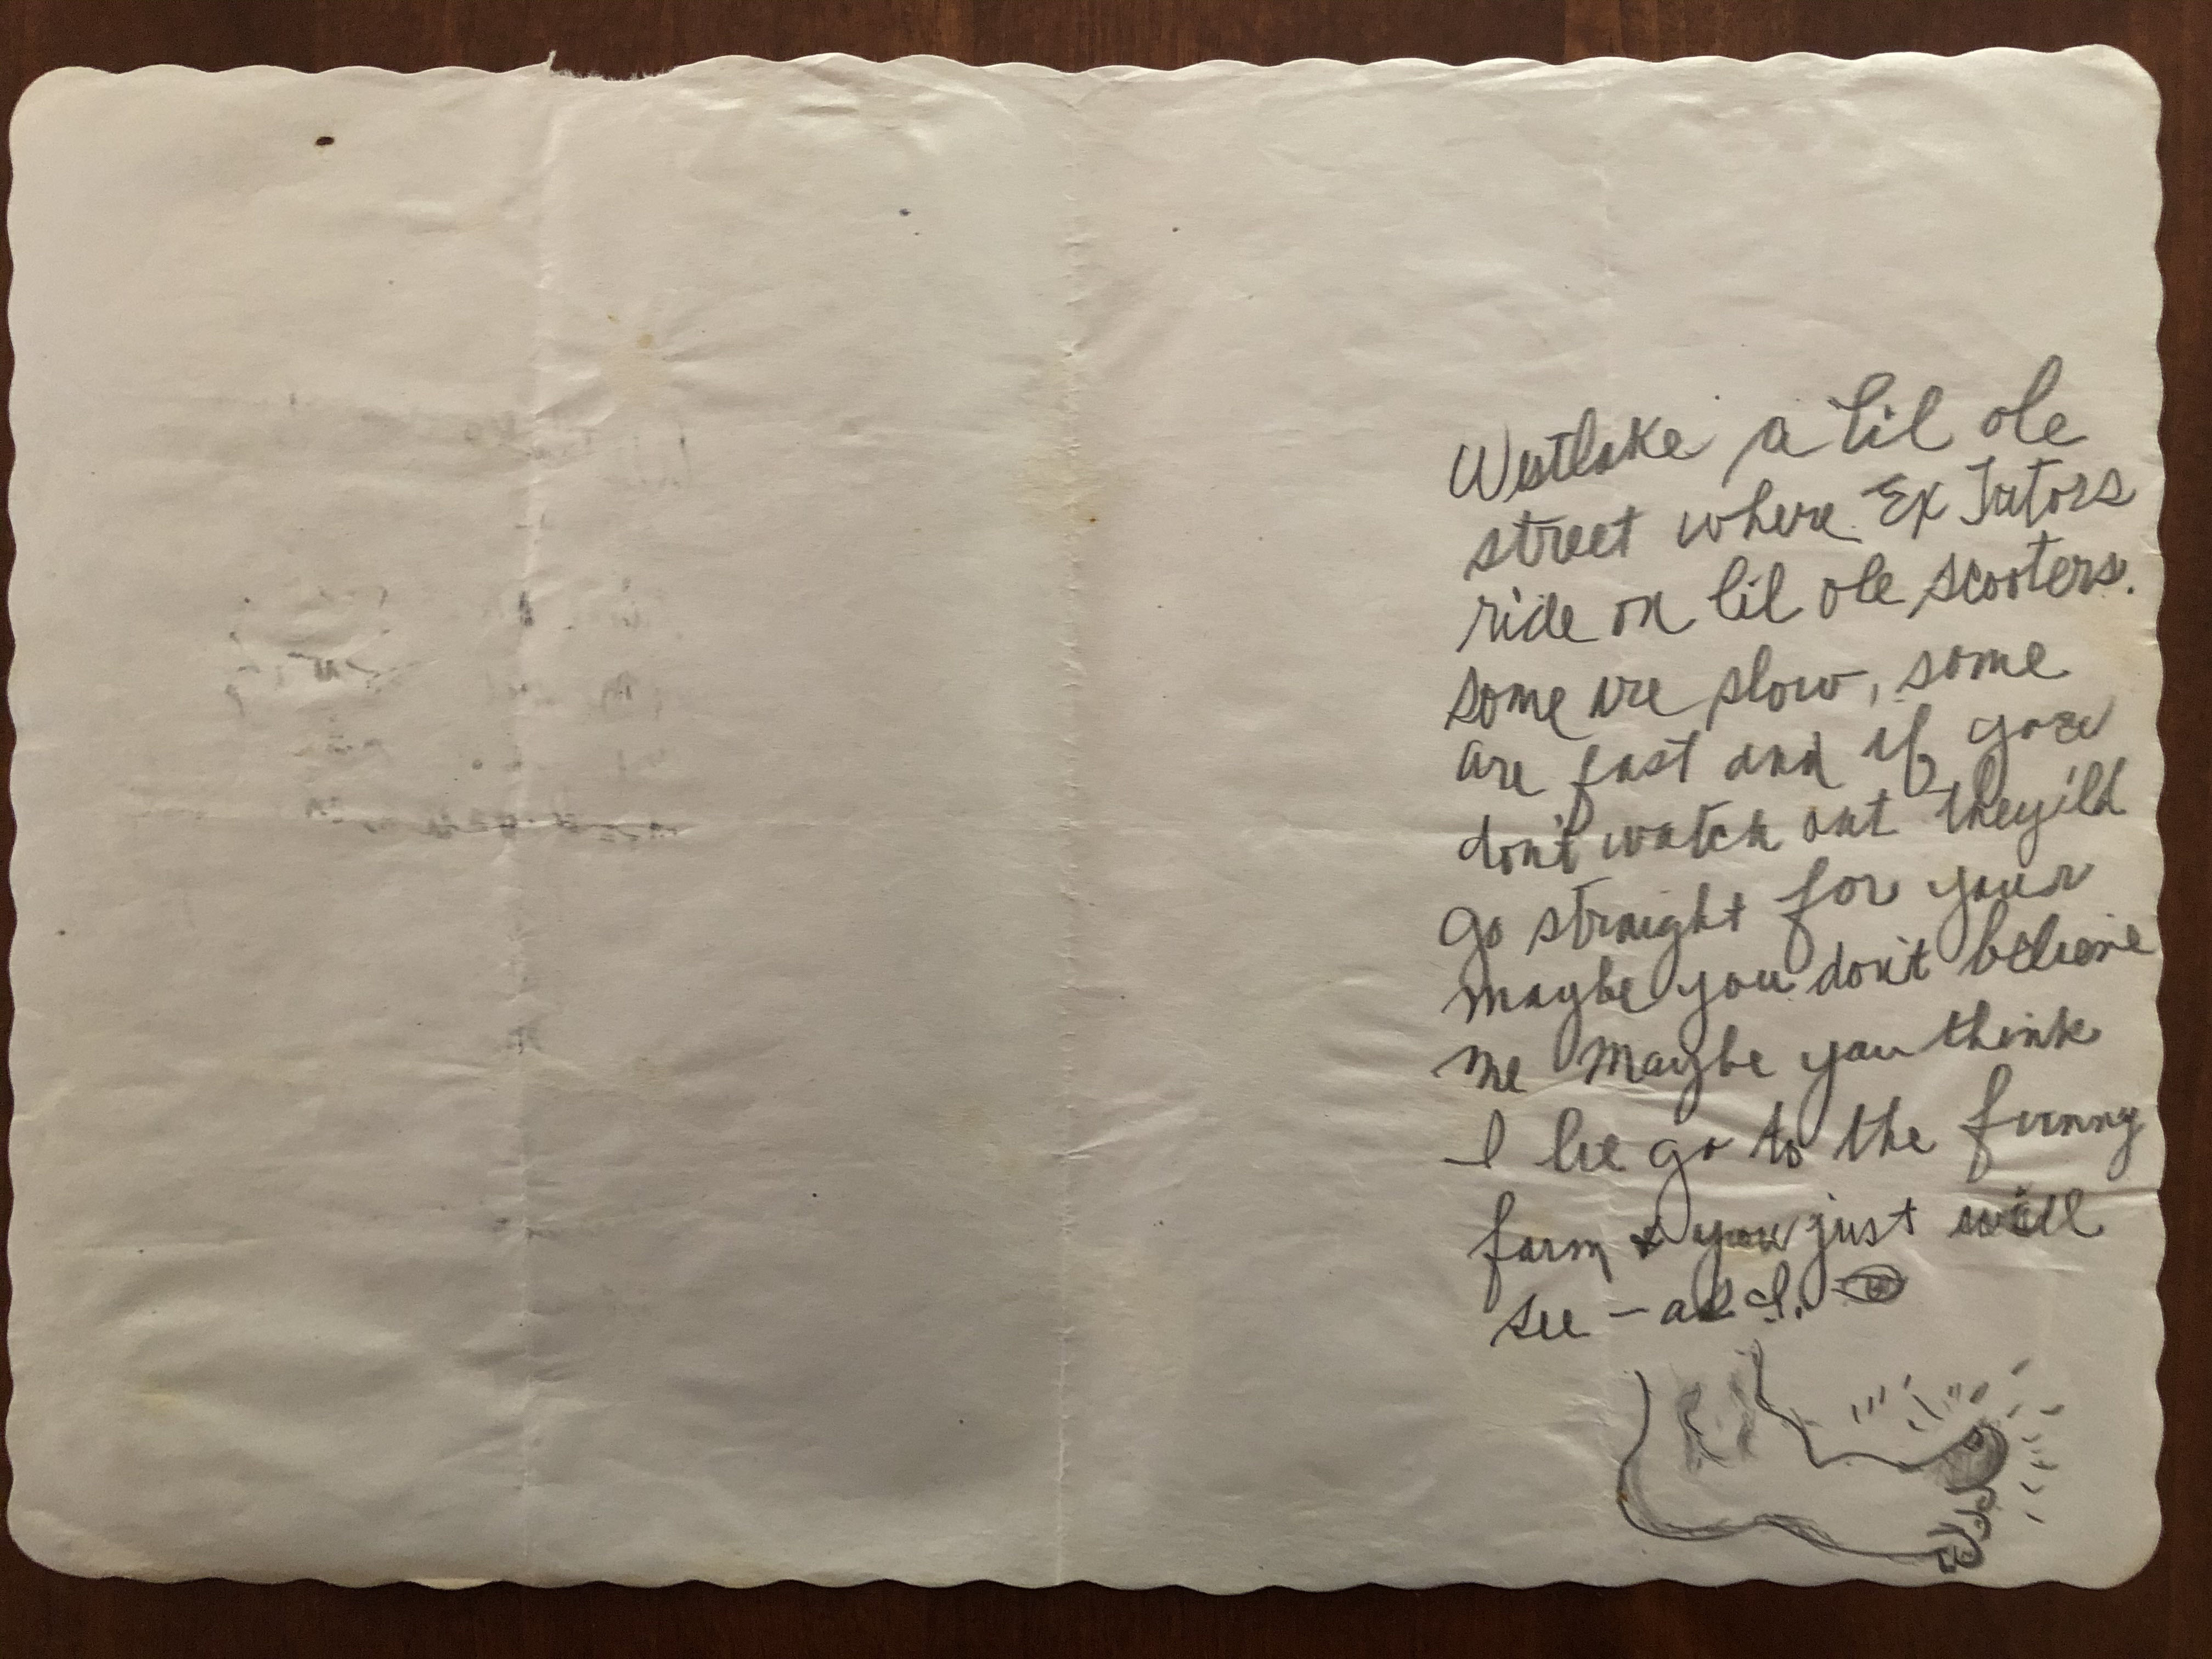 Westlake a lil ole
street where Ex Tutors
ride on lil ole scooters.
some are slow, some
are fast and if you
don't watch out they'ild
go straight for your
maybe you don't believe
me maybe you think
I lie go to the funny
farm & you just will
see -